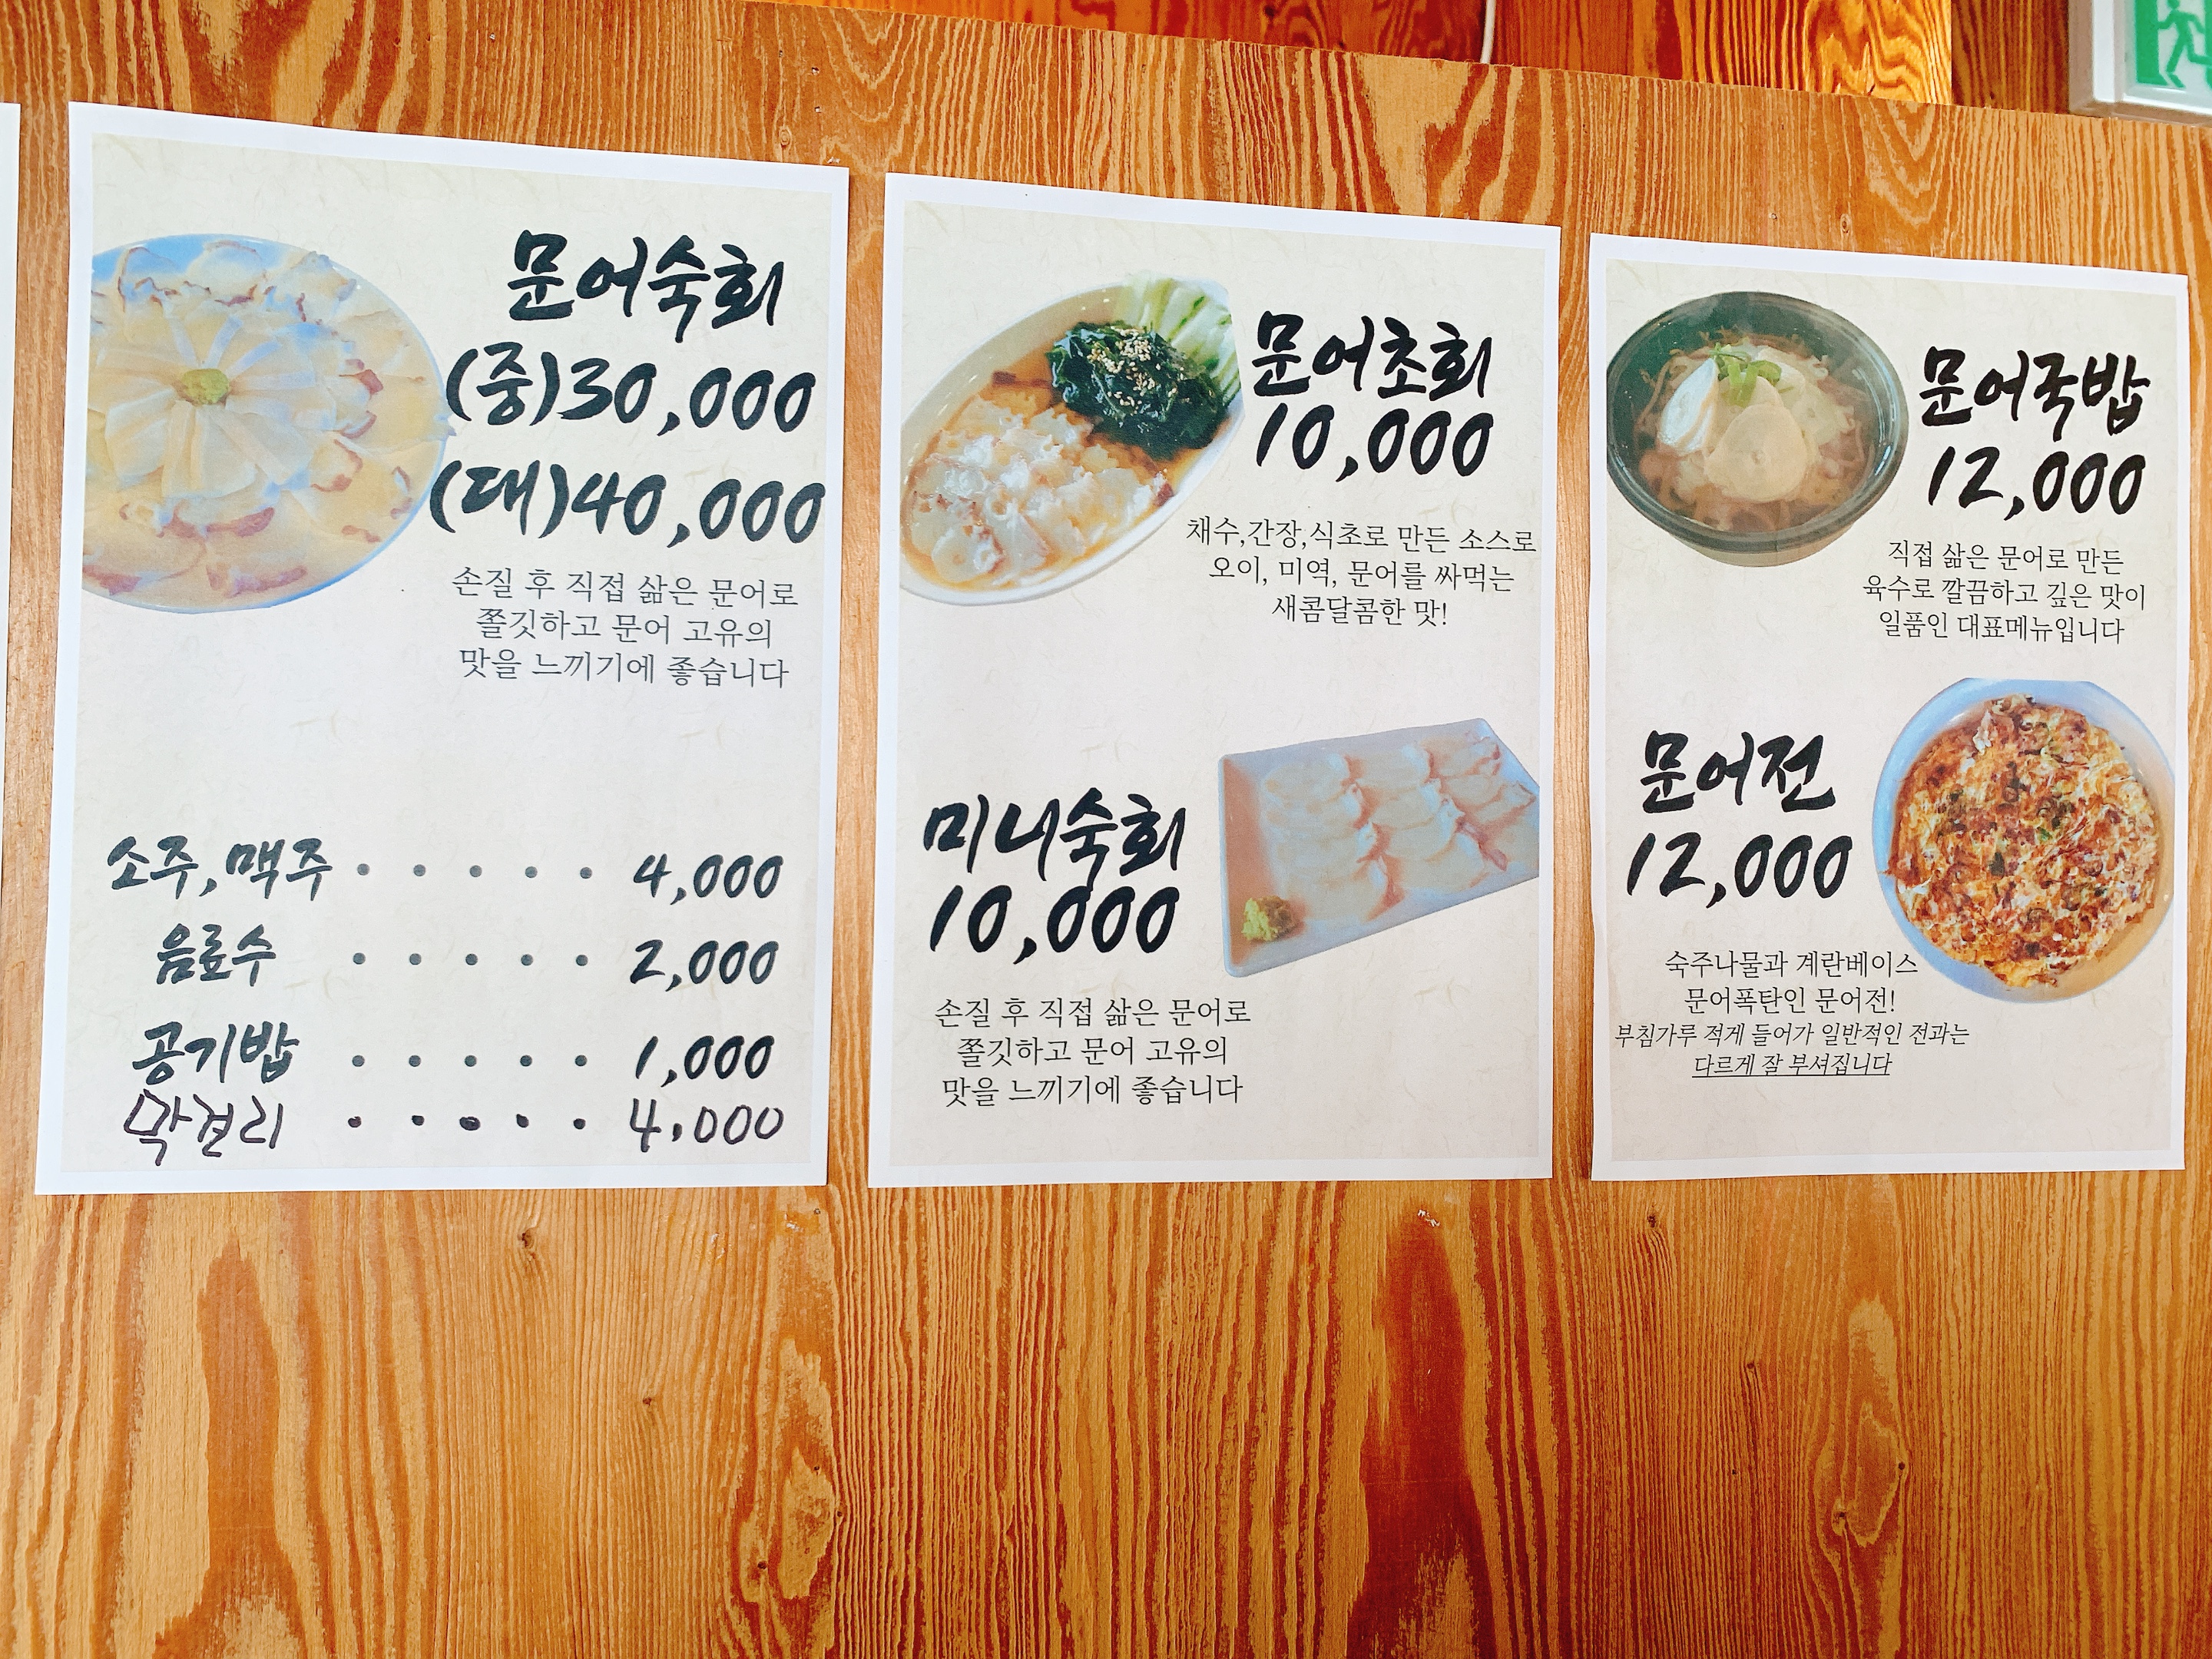 문어숙회
(중)30,000
(대)40,000
손질 후 직접 삶은 문어로
쫄깃하고 문어 고유의
맛을 느끼기에 좋습니다
소주,맥주 · · · · · 4,000
음료수 · · · · · 2,000
공기밥 · · · · · 1,000
막걸리 · · · · · 4,000
문어초회
10,000
채수,간장,식초로 만든 소스로
오이, 미역, 문어를 싸먹는
새콤달콤한 맛!
미니숙회
10,000
손질 후 직접 삶은 문어로
쫄깃하고 문어 고유의
맛을 느끼기에 좋습니다
문어국밥
12,000
직접 삶은 문어로 만든
육수로 깔끔하고 깊은 맛이
일품인 대표메뉴입니다
문어전
12,000
숙주나물과 계란베이스
문어폭탄인 문어전!
부침가루 적게 들어가 일반적인 전과는
다르게 잘 부셔집니다